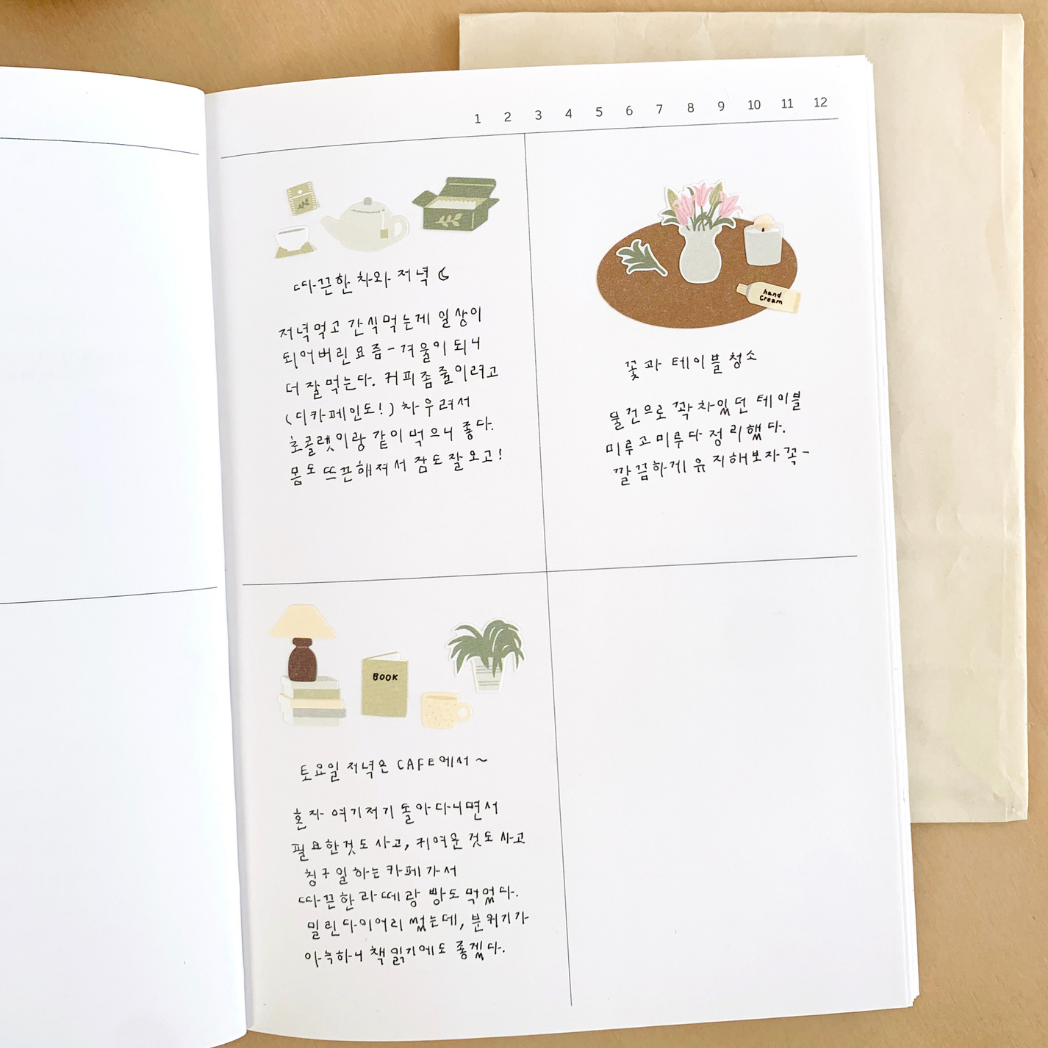 1 2 3 4 5 6 7 8 9 10 11 12
따끈한 차와 저녁
저녁먹고 간식먹는게 일상이
되어버린요즘~ 겨울이 되니
더 잘먹는다. 커피좀줄이려고
(디카페인도!) 차 우려서
초콜렛이랑 같이 먹으니 좋다.
몸도 뜨끈해져서 잠도 잘오고!
hand
cream
꽃과 테이블 청소
물건으로 꽉 차있던 테이블
미루고미루다 정리했다.
깔끔하게 유지해보자 꼭~
BOOK
토요일 저녁은 CAFE에서~
혼자 여기저기 돌아다니면서
필요한것도 사고, 귀여운 것도 사고
칭구 일하는 카페가서
따끈한 라떼랑 빵도 먹었다.
밀린다이어리 썼는데, 분위기가
아늑하니 책읽기에도 좋겠다.